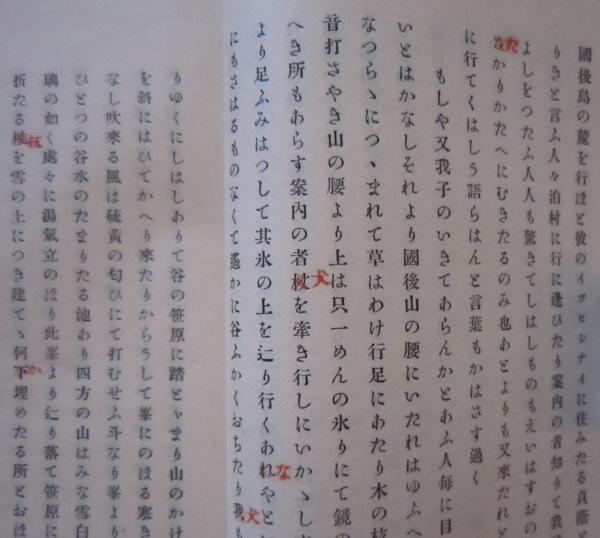 國後島の麓を行ほと彼のイツヒシナイに住みたる貞蔭
りきと言ふ人々泊村に行に逢ひたり案內の者知りて我
よしをつたふ人人も驚きてしはしものもえいはすおの
かりかたへにむきたるのみ也あとよりも又來たれと
に行てくはしう語らはんと言葉もかはさす過く
もしや又我子のいきておらんかとあふ人每に目
いとはかなしそれより國後山の腰にいたれはゆふへ
なつらゝにつゝまれて草はわけ行足にあたり木の枝
音打さやき山の腰より上は只一めんの氷りにて鏡の
へき所もあらす案內の者杖を牽き行しにいかゝしす
犬
より足ふみはつして其氷の上を辷り行くあれやと
な
にもさはるものなくて遙かに谷ふかくおちたり我も
犬
りゆくにしはしありて谷の笹原に踏とゝまり山のかけ
を斜にはひてかへり來たりからうして峯にのほる寒き
なし吹來る風は硫黃の匂ひにて打むせふ斗なり峯より
ひとつの谷水のたまりたる池あり四方の山はみな雪白
璃の如く處々に湯氣立のほり此峯より辷り落て笹原に
折たる を雪の上につき建てゝ何 埋めたる所とおほ
か